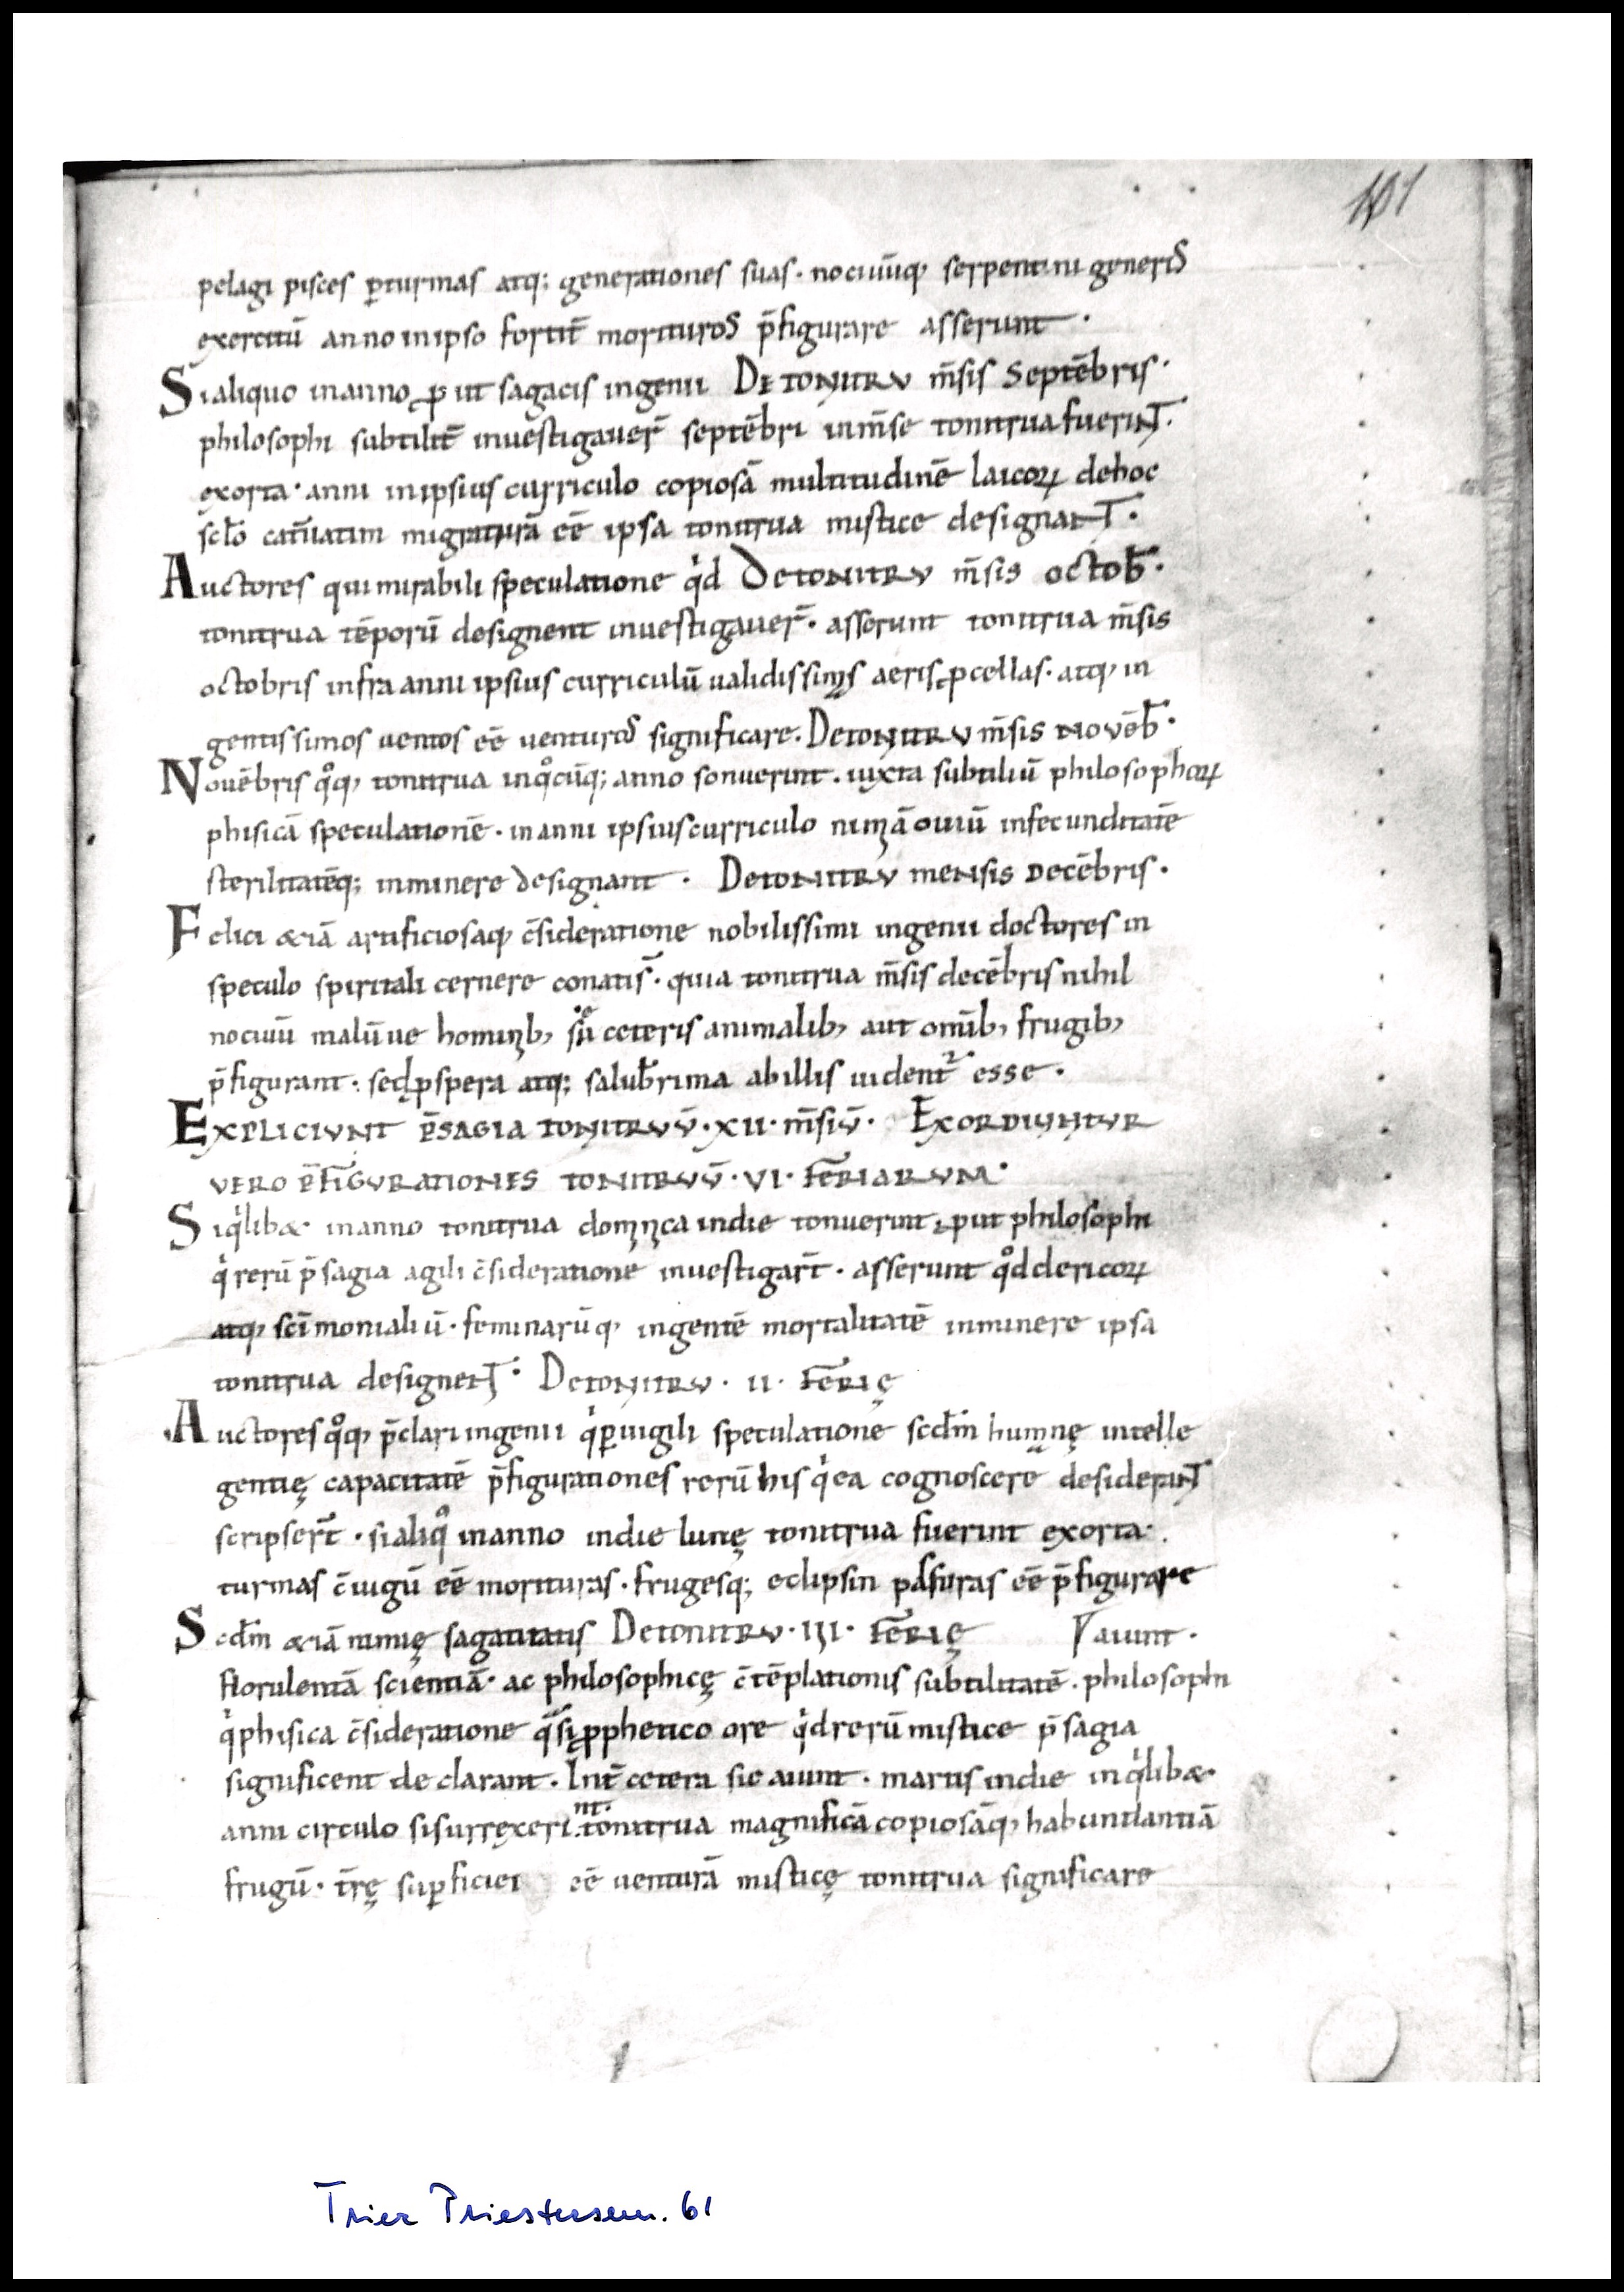 101
pelagi pisces ꝑturmas atq; generationes suas · nociuūq; serpentini generis
exercitū anno inipso fortit̄ morituros p̄figurare asserunt ·
Sialiquo inanno, ꝓut sagacis ingenii DE TONITRV m̄sis Septēbris ·
philosophi subtilit̄ inuestigauer̄ septēbri inm̄se tonitrua fuerint ·
exorta · anni inipsius curriculo copiosā multitudinē laicoꝝ dehoc
sc̄lo cat̄uatim migraturā eē ipsa tonitrua mistice designant ·
Auctores qui mirabili speculatione qͥd DETONITRV m̄sis octob̄ ·
tonitrua tēporū designent inuestigauer̄ · asserunt tonitrua m̄sis
octobris infra anni ipsius curriculū ualidissimas aeris ꝓcellas · atq; in
gentissimos uentos eē uenturos significare. DETONITRV m̄sis NOVĒB̄ ·
Nouēbris qͦq; tonitrua inqͦcūq; anno sonuerint · iuxta subtiliū philosophoꝝ
phisicā speculationē · inanni ipsiuscurriculo nimiā ouiū infecunditatē
sterilitatēq; inminere designant · DETONITRV MENSIS DECĒBRIS ·
Felici &iā artificiosaq; c̄sideratione nobilissimi ingenii doctores in
speculo spiritali cernere conatis̄ · quia tonitrua m̄sis decēbris nihil
nociuū malūue hominib; ceteris animalib; aut omīb; frugib;
p̄figurant : sedꝓspera atq; salub̄rima abillis uident᷑ esse ·
EXPLICIVNT P̄SAGIA TONITRVŪ · XII · M̄SIŪ · EXORDIVNTVR
VERO P̄FIGVRATIONES TONITRVŪ · VI · FĒRIARVM ·
Siqͥlib& · inanno tonitrua dominica indie tonuerint, ꝓut philosophi
qͥ rerū p̄sagia agili c̄sideratione inuestigar̄t · asserunt qͦd clericoꝝ
atq; sc̄imonialiū · feminarūq; ingentē mortalitatē inminere ipsa
tonitrua designent · DETONITRV · II · FĒRIĘ
Auctores qͦq; p̄clari ingenii qͥꝑuigili speculatione scd̄m humanę intelle
gentię capacitatē p̄figurationes rerū his qͥ ea cognoscere desiderant
scripser̄t · sialiqͦ inanno indie lunę tonitrua fuerint exorta ·
turmas c̄iugū eē morituras · frugesq; eclipsin passuras eē p̄figurare
Scd̄m &iā nimię sagacitatis DETONITRV · III · FĒRIĘ aiunt ·
florulentā scientiā · ac philosophicę c̄tēplationis subtilitatē · philosophi
qͥphisica c̄sideratione qͣsi ꝓphetico ore qͥd rerū mistice p̄sagia
significent declarant · Int̄ cetera sic aiunt · martis indie inqͥlib& ·
anni circulo sisurrexerint tonitrua magnificā copiosāq; habundantiā
frugū · t̄rę suꝑficiei eē uenturā misticę tonitrua significare
Trier Priestersem. 61